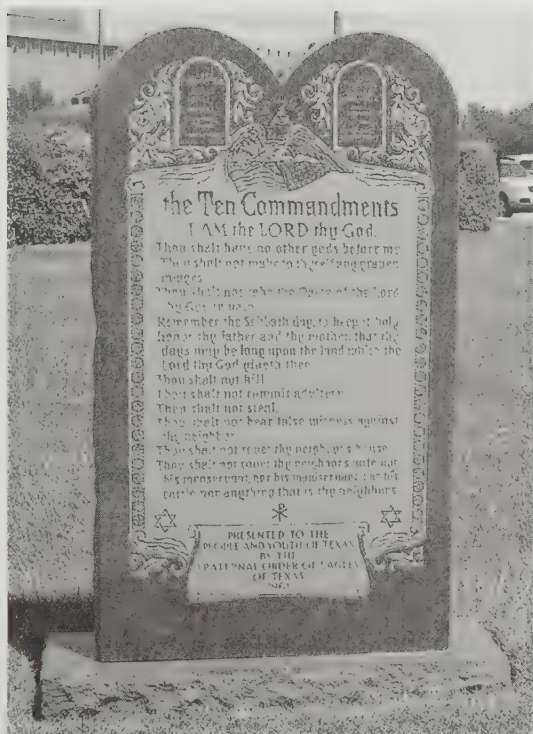 the Ten Commandments
I AM the LORD thy God.
Thou shalt have no other gods before me
Thou shalt not make to thyself any graven
images
Thou shalt not take the Name of the Lord
thy God in vain
Remember the Sabbath day, to keep it holy
Honor thy father and thy mother, that thy
days may be long upon the land which the
Lord thy God giveth thee
Thou shalt not kill
Thou shalt not commit adultery
Thou shalt not steal.
Thou shalt not bear false witness against
thy neighbor
Thou shalt not covet thy neighbor's house
Thou shalt not covet thy neighbor's wife nor
his manservant nor his maidservant nor his
cattle nor anything that is thy neighbor's
PRESENTED TO THE
PEOPLE AND YOUTH OF TEXAS
BY THE
FRATERNAL ORDER OF EAGLES
OF TEXAS